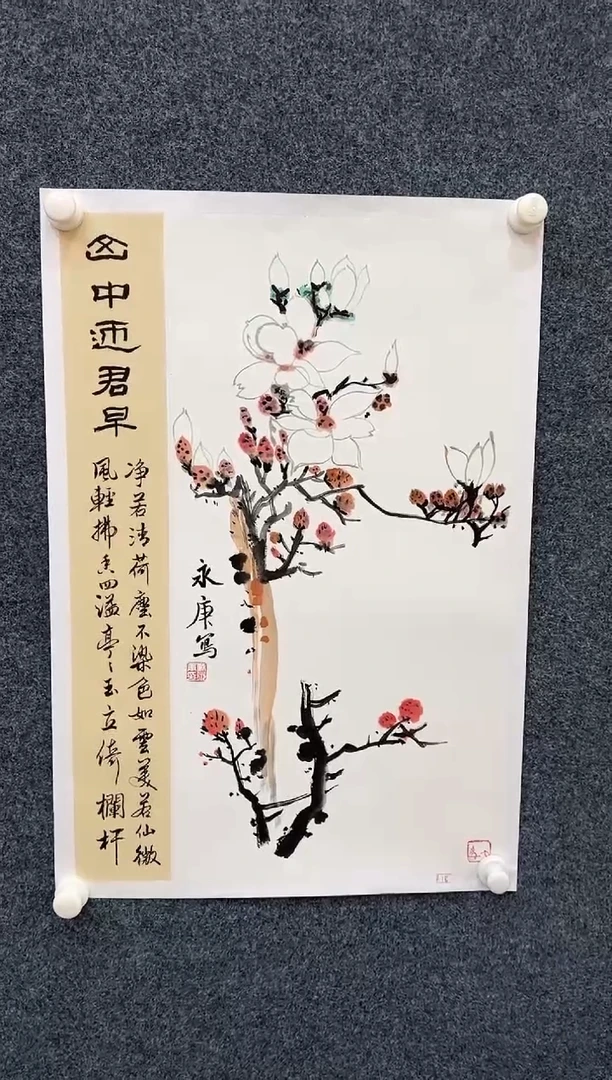 中迎君早
净若清荷塵不染色如雲美若仙微
風輕拂香四溢亭〻玉立倚欄杆
永庚寫